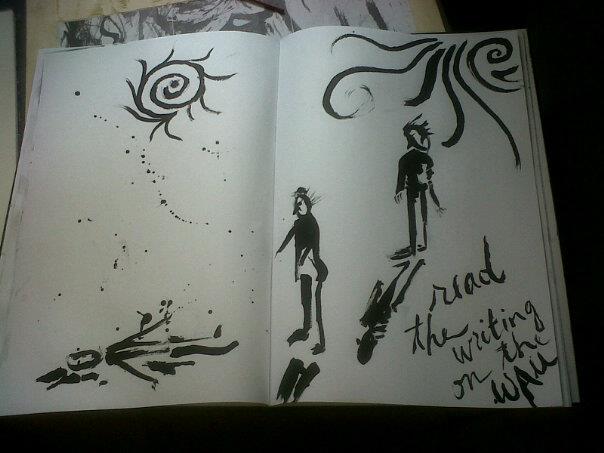 read
the writing
on the
WALL